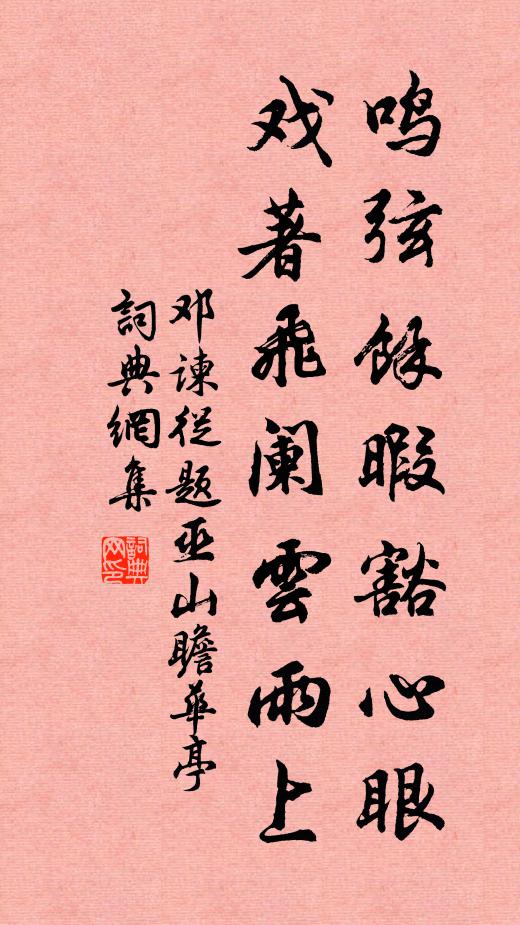 鸣弦馀暇豁心眼
戏著飛阑雲雨上
邓谏從题巫山瞻華亭
詞典網集
詞典网印